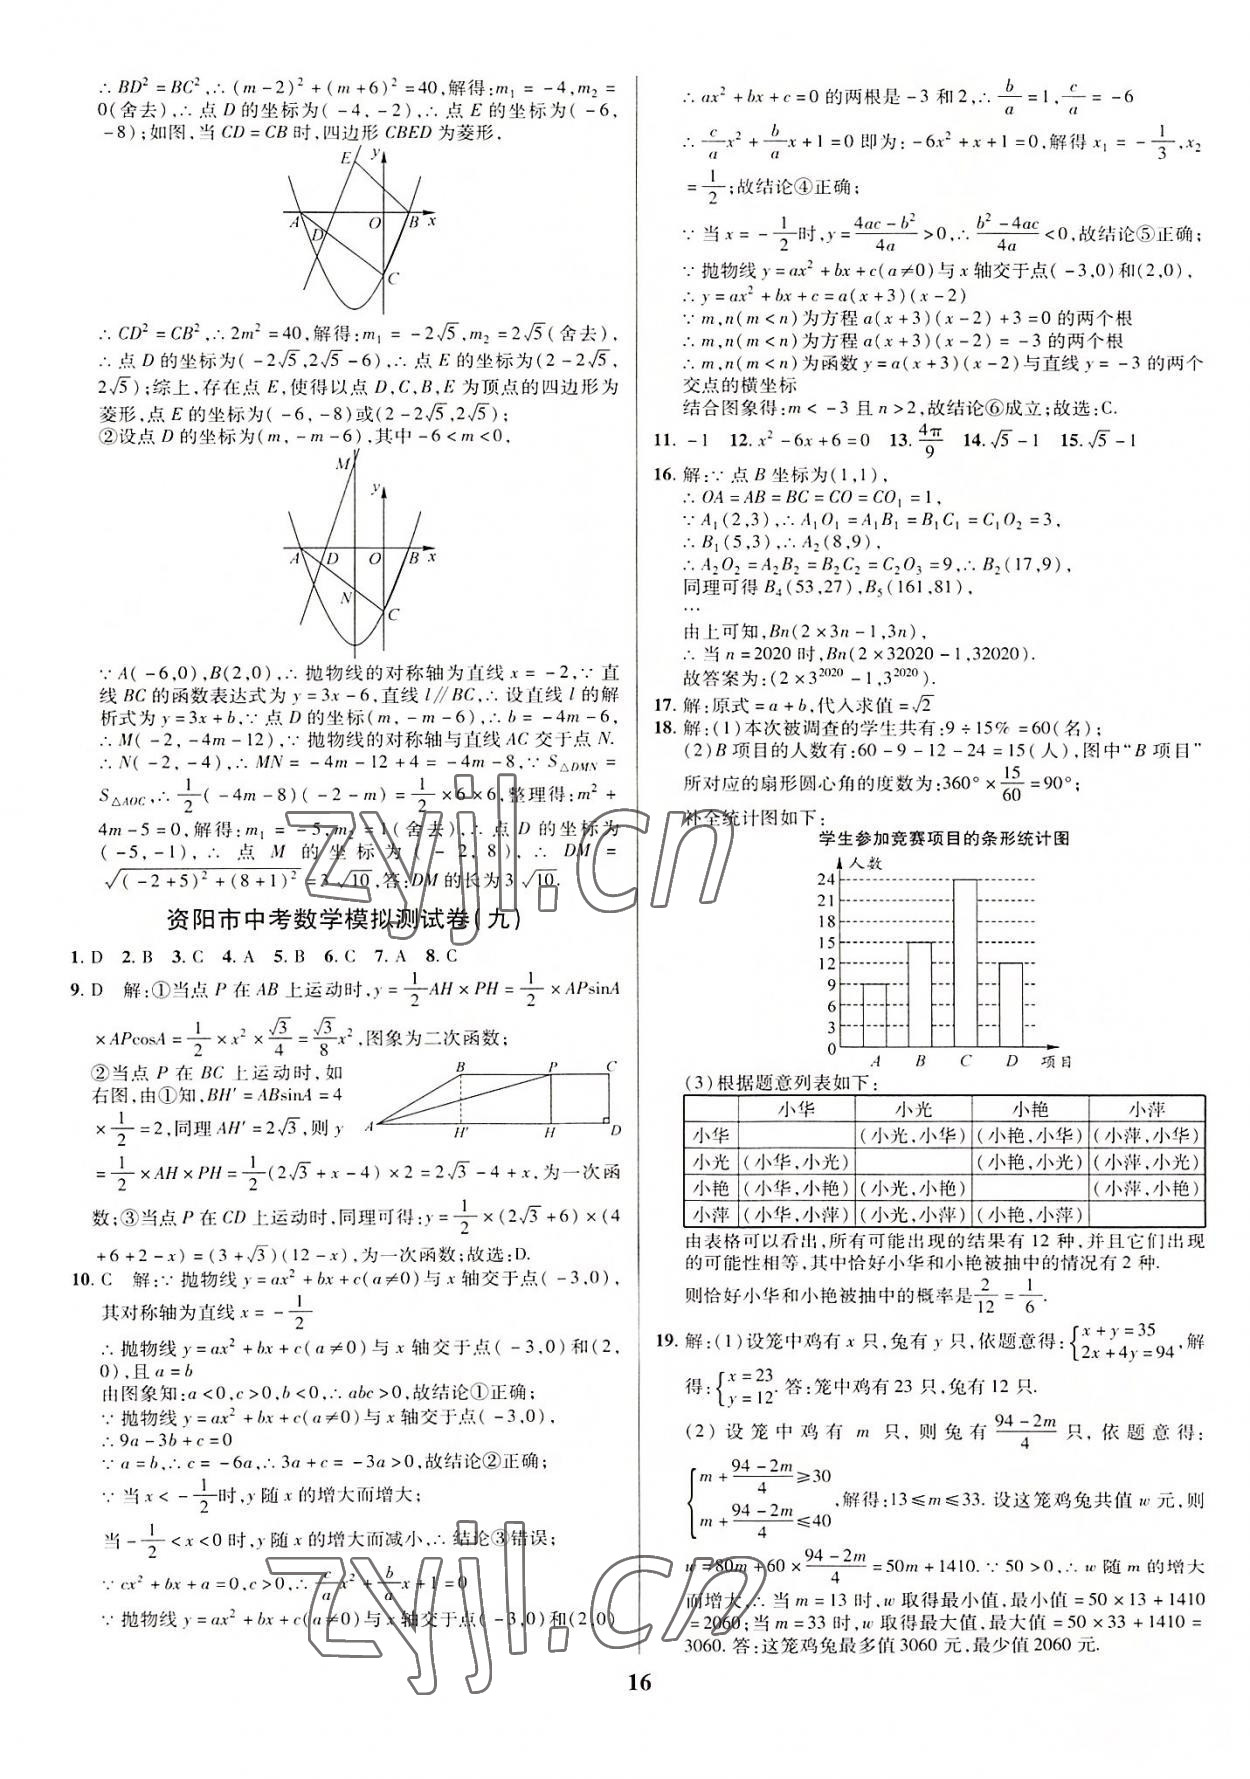 ∴BD²=BC²,∴(m-2)²+(m+6)²=40,解得:m₁=-4,m₂=
0(舍去),∴点D的坐标为(-4,-2),∴点E的坐标为(-6,
-8);如图,当CD=CB时,四边形CBED为菱形.
E y
A O B x
D
C
∴CD²=CB²,∴2m²=40,解得:m₁=-2√5,m₂=2√5(舍去),
∴点D的坐标为(-2√5,2√5-6),∴点E的坐标为(2-2√5,
2√5);综上,存在点E,使得以点D,C,B,E为顶点的四边形为
菱形,点E的坐标为(-6,-8)或(2-2√5,2√5);
②设点D的坐标为(m,-m-6),其中-6<m<0,
M
y
A D O B x
N
C
∵A(-6,0),B(2,0),∴抛物线的对称轴为直线x=-2,∵直
线BC的函数表达式为y=3x-6,直线l∥BC,∴设直线l的解
析式为y=3x+b,∵点D的坐标(m,-m-6),∴b=-4m-6,
∴M(-2,-4m-12),∵抛物线的对称轴与直线AC交于点N.
∴N(-2,-4),∴MN=-4m-12+4=-4m-8,∵S△DMN=
S△AOC,∴1/2(-4m-8)(-2-m)=1/2×6×6,整理得:m²+
4m-5=0,解得:m₁=-5,m₂=1(舍去),∴点D的坐标为
(-5,-1),∴点M的坐标为(-2,8),∴DM=
√((-2+5)²+(8+1)²)=3√10,答:DM的长为3√10.
资阳市中考数学模拟测试卷(九)
1. D 2. B 3. C 4. A 5. B 6. C 7. A 8. C
9. D 解:①当点P在AB上运动时,y=1/2AH×PH=1/2×APsinA
×APcosA=1/2×x²×√3/4=√3/8x²,图象为二次函数;
②当点P在BC上运动时,如
右图,由①知,BH′=ABsinA=4
×1/2=2,同理AH′=2√3,则y
B P C
A H′ H D
=1/2×AH×PH=1/2(2√3+x-4)×2=2√3-4+x,为一次函
数;③当点P在CD上运动时,同理可得:y=1/2×(2√3+6)×(4
+6+2-x)=(3+√3)(12-x),为一次函数;故选:D.
10. C 解:∵抛物线y=ax²+bx+c(a≠0)与x轴交于点(-3,0),
其对称轴为直线x=-1/2
∴抛物线y=ax²+bx+c(a≠0)与x轴交于点(-3,0)和(2,
0),且a=b
由图象知:a<0,c>0,b<0,∴abc>0,故结论①正确;
∵抛物线y=ax²+bx+c(a≠0)与x轴交于点(-3,0),
∴9a-3b+c=0
∵a=b,∴c=-6a,∴3a+c=-3a>0,故结论②正确;
∵当x<-1/2时,y随x的增大而增大;
当-1/2<x<0时,y随x的增大而减小,∴结论③错误;
∵cx²+bx+a=0,c>0,∴c/a x²+b/a x+1=0
∵抛物线y=ax²+bx+c(a≠0)与x轴交于点(-3,0)和(2,0)
∴ax²+bx+c=0的两根是-3和2,∴b/a=1,c/a=-6
∴c/a x²+b/a x+1=0即为:-6x²+x+1=0,解得x₁=-1/3,x₂
=1/2;故结论④正确;
∵当x=-1/2时,y=(4ac-b²)/4a>0,∴(b²-4ac)/4a<0,故结论⑤正确;
∵抛物线y=ax²+bx+c(a≠0)与x轴交于点(-3,0)和(2,0),
∴y=ax²+bx+c=a(x+3)(x-2)
∵m,n(m<n)为方程a(x+3)(x-2)+3=0的两个根
∴m,n(m<n)为方程a(x+3)(x-2)=-3的两个根
∴m,n(m<n)为函数y=a(x+3)(x-2)与直线y=-3的两个
交点的横坐标
结合图象得:m<-3且n>2,故结论⑥成立;故选:C.
11. -1 12. x²-6x+6=0 13. 4π/9 14. √5-1 15. √5-1
16. 解:∵点B坐标为(1,1),
∴OA=AB=BC=CO=CO₁=1,
∵A₁(2,3),∴A₁O₁=A₁B₁=B₁C₁=C₁O₂=3,
∴B₁(5,3),∴A₂(8,9),
∴A₂O₂=A₂B₂=B₂C₂=C₂O₃=9,∴B₂(17,9),
同理可得B₄(53,27),B₅(161,81),
…
由上可知,Bn(2×3n-1,3n),
∴当n=2020时,Bn(2×32020-1,32020).
故答案为:(2×3²⁰²⁰-1,3²⁰²⁰).
17. 解:原式=a+b,代入求值=√2
18. 解:(1)本次被调查的学生共有:9÷15%=60(名);
(2)B项目的人数有:60-9-12-24=15(人),图中“B项目”
所对应的扇形圆心角的度数为:360°×15/60=90°;
补全统计图如下:
学生参加竞赛项目的条形统计图
人数
24
21
18
15
12
9
6
3
0
A B C D 项目
(3)根据题意列表如下:
小华 小光 小艳 小萍
小华 (小光,小华) (小艳,小华) (小萍,小华)
小光 (小华,小光) (小艳,小光) (小萍,小光)
小艳 (小华,小艳) (小光,小艳) (小萍,小艳)
小萍 (小华,小萍) (小光,小萍) (小艳,小萍)
由表格可以看出,所有可能出现的结果有12种,并且它们出现
的可能性相等,其中恰好小华和小艳被抽中的情况有2种.
则恰好小华和小艳被抽中的概率是2/12=1/6.
19. 解:(1)设笼中鸡有x只,兔有y只,依题意得:{x+y=35 2x+4y=94,解
得:{x=23 y=12.答:笼中鸡有23只,兔有12只.
(2)设笼中鸡有m只,则兔有(94-2m)/4只,依题意得:
{m+(94-2m)/4≥30 m+(94-2m)/4≤40,解得:13≤m≤33.设这笼鸡兔共值w元,则
w=80m+60×(94-2m)/4=50m+1410.∵50>0,∴w随m的增大
而增大,∴当m=13时,w取得最小值,最小值=50×13+1410
=2060;当m=33时,w取得最大值,最大值=50×33+1410=
3060.答:这笼鸡兔最多值3060元,最少值2060元.
16
zyjl.cn
zyjl.cn